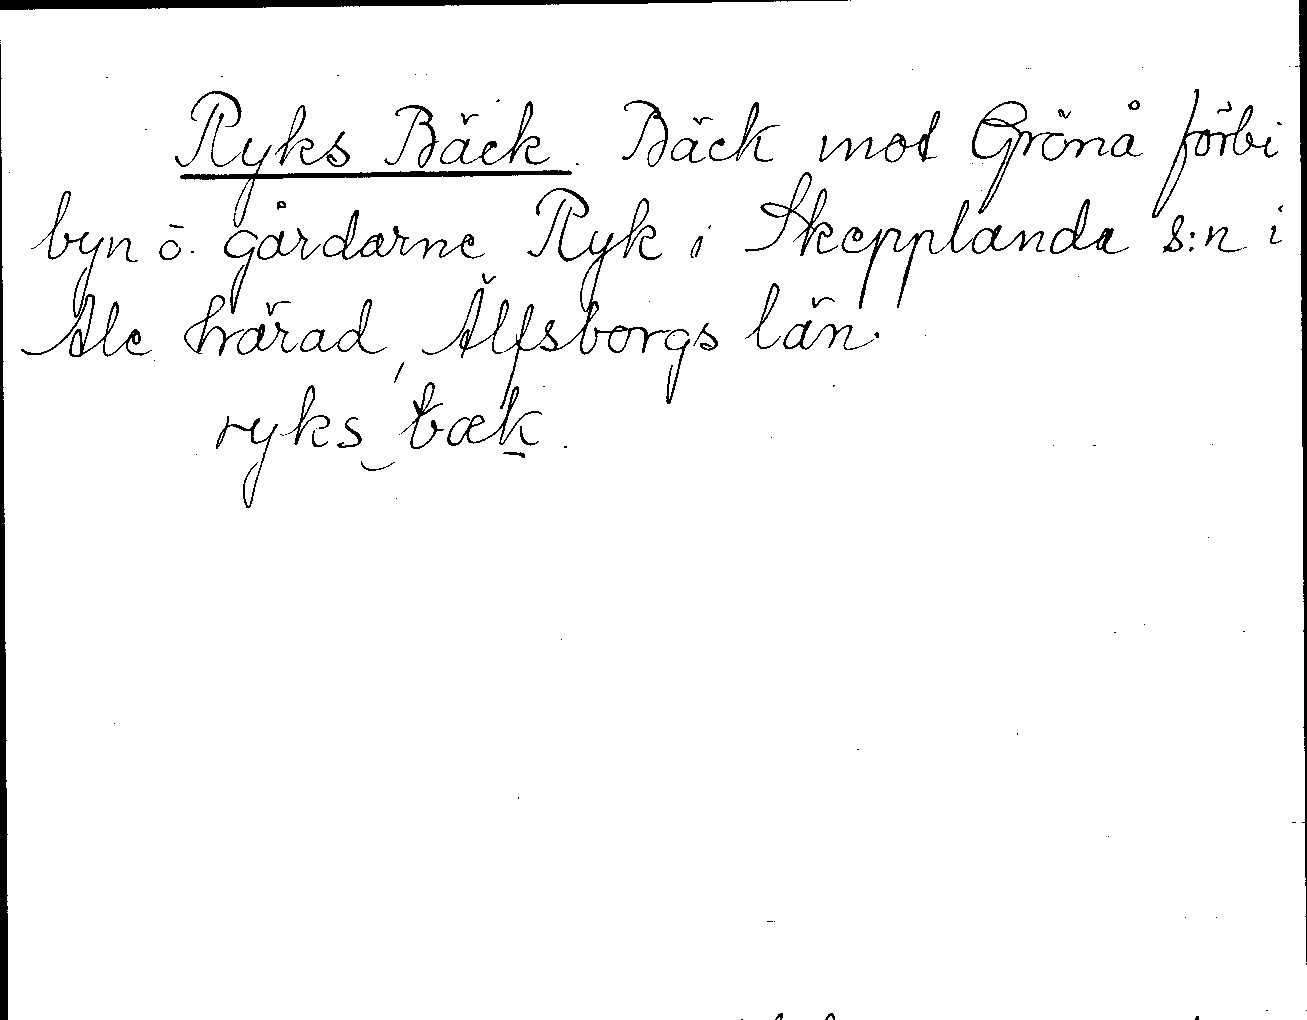 Ryks Bäck. Bäck mot Grönå förbi
byn o. gårdarne Ryk i Skepplanda s:n i
Ale härad, Älfsborgs län.
ryks bæk.